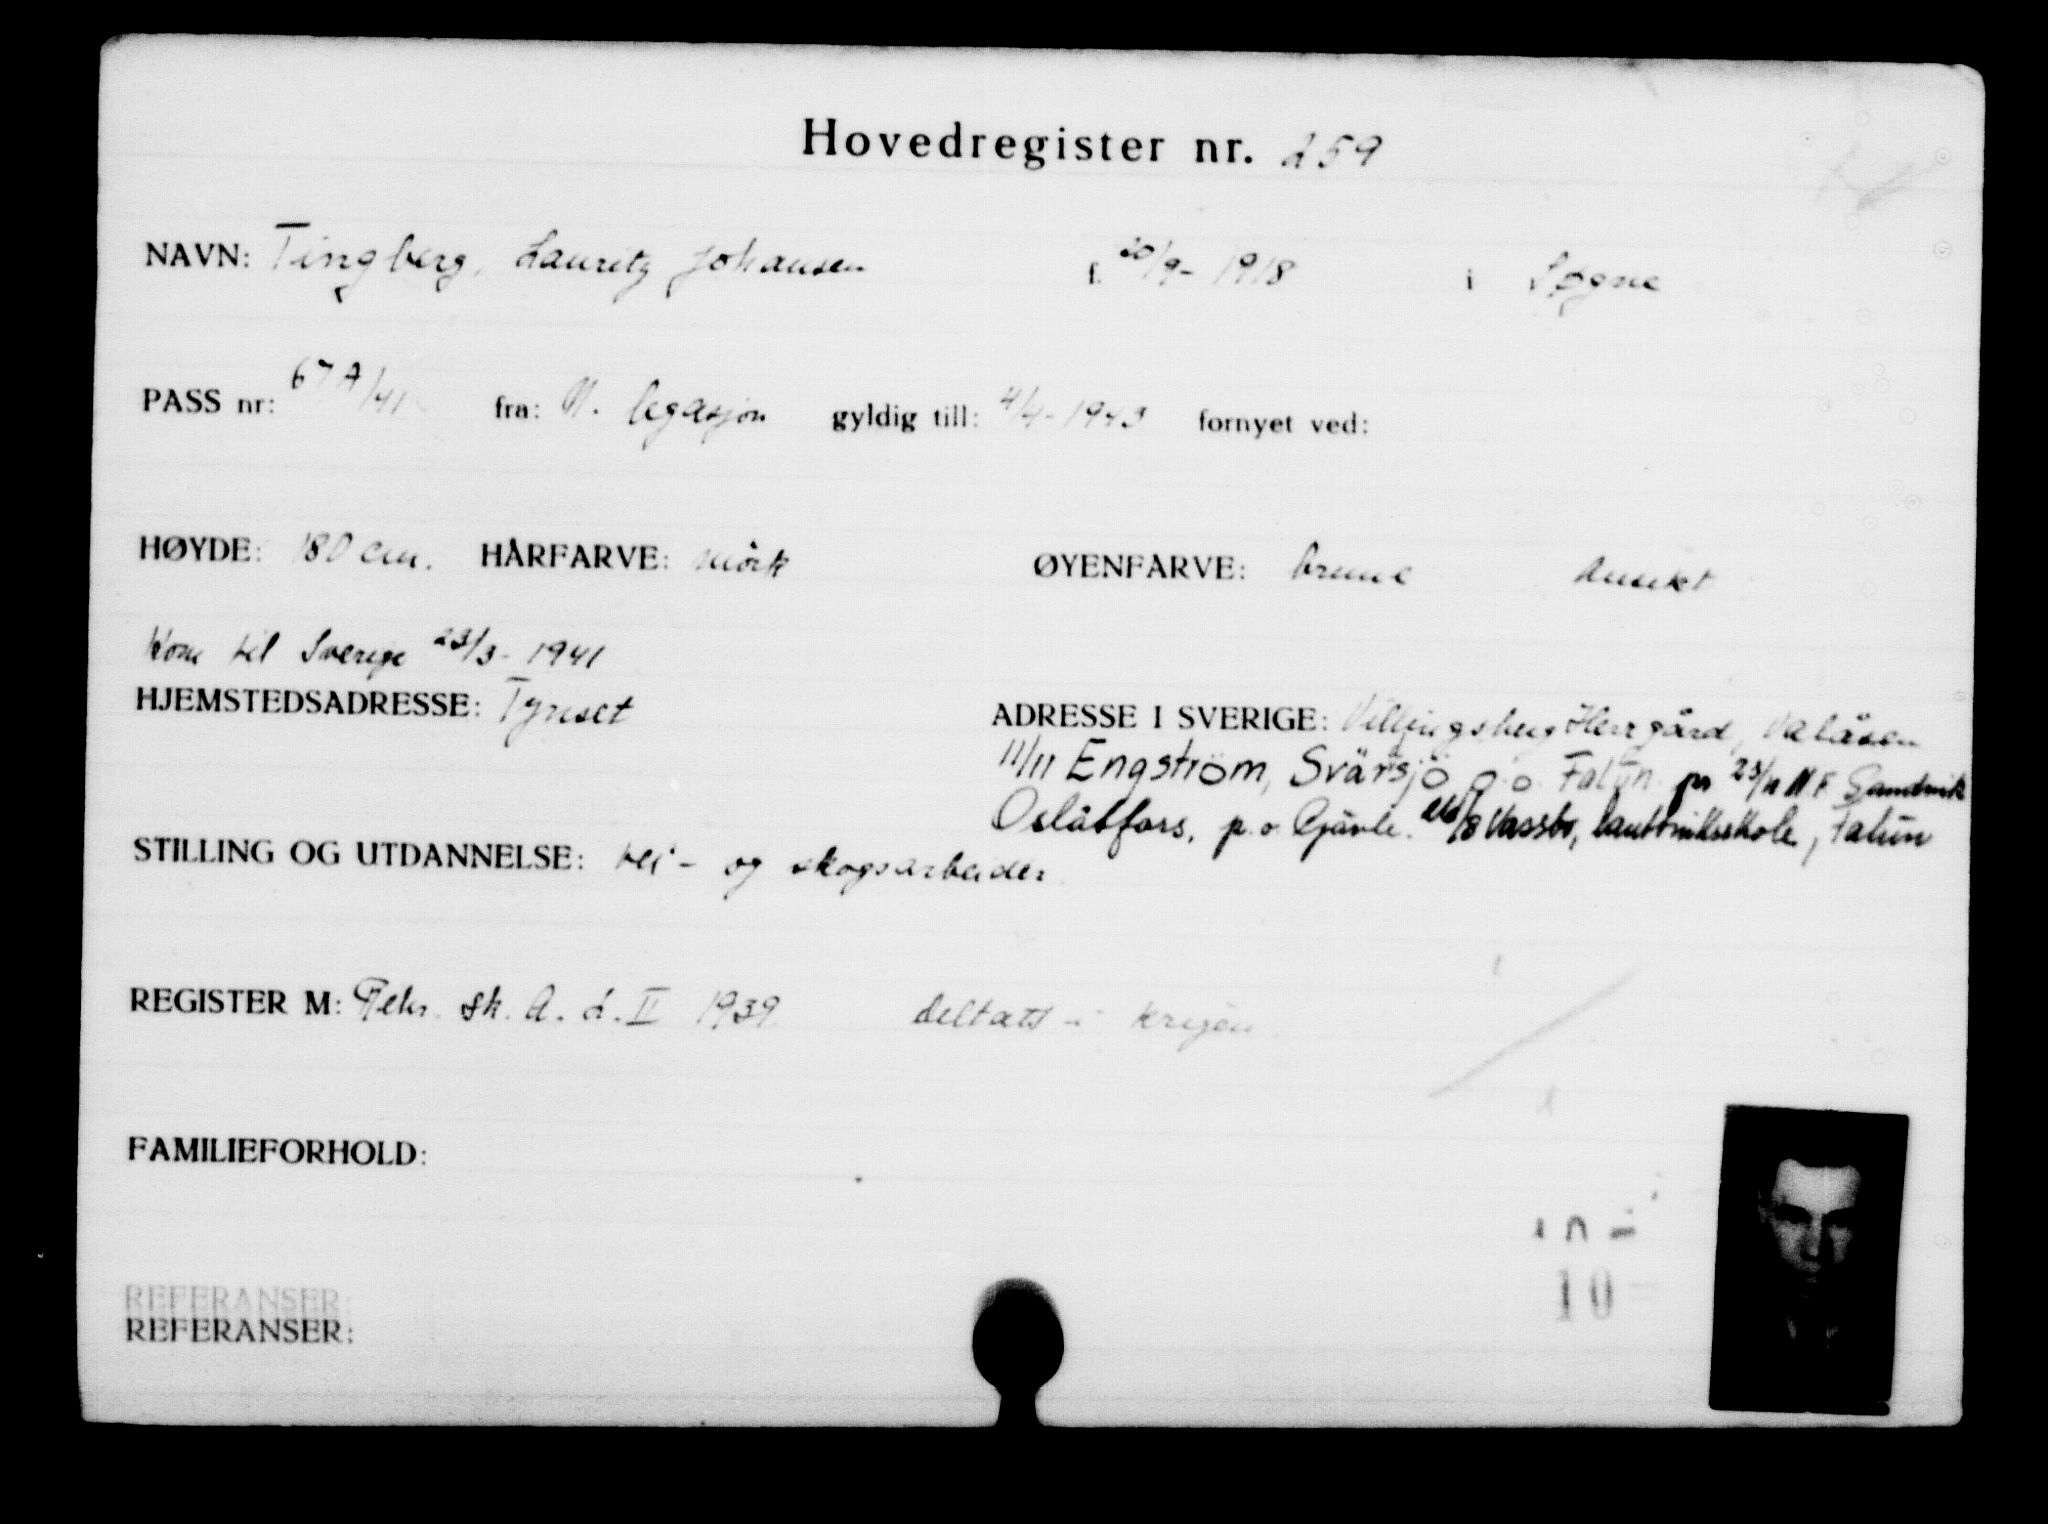 Hovedregister nr. 259
NAVN: Tingberg, Lauritz Johansen f. 20/9- 1918 i Søgne
PASS nr: 67A/41 fra: N. legasjon gyldig till: 4/4-1943 fornyet ved:
HØYDE: 180 cm. HÅRFARVE: mörk ØYENFARVE: brune Ansikt
Kom til Sverige 23/3- 1941
HJEMSTEDSADRESSE: Tynset ADRESSE I SVERIGE: Villingsberg Herrgård, Valåsen
11/11 Engström, Svärsjö p.o. Falun pr 23/11 N F Sandvik
Oslättfors, p.o. Gävle. Vassbo, lantbruksskole, Falun
STILLING OG UTDANNELSE: vei- og skogsarbeider
REGISTER M: Rekr. sk. A. d. II 1939 deltatt i krigen
FAMILIEFORHOLD:
10-
10-
REFERANSER:
REFERANSER: